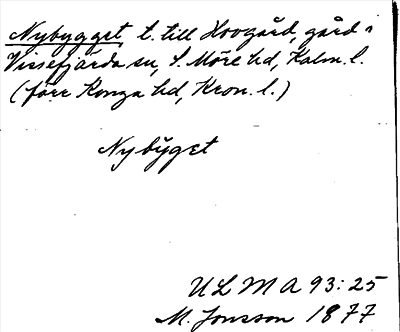 Nybygget, t. till Hovgård, gård i
Vissefjärda sn, S. Möre hd, Kalm. l.
(förr Konga hd, Kron. l.)
Nybÿget
ULMA 93:25
M. Jonsson 1877